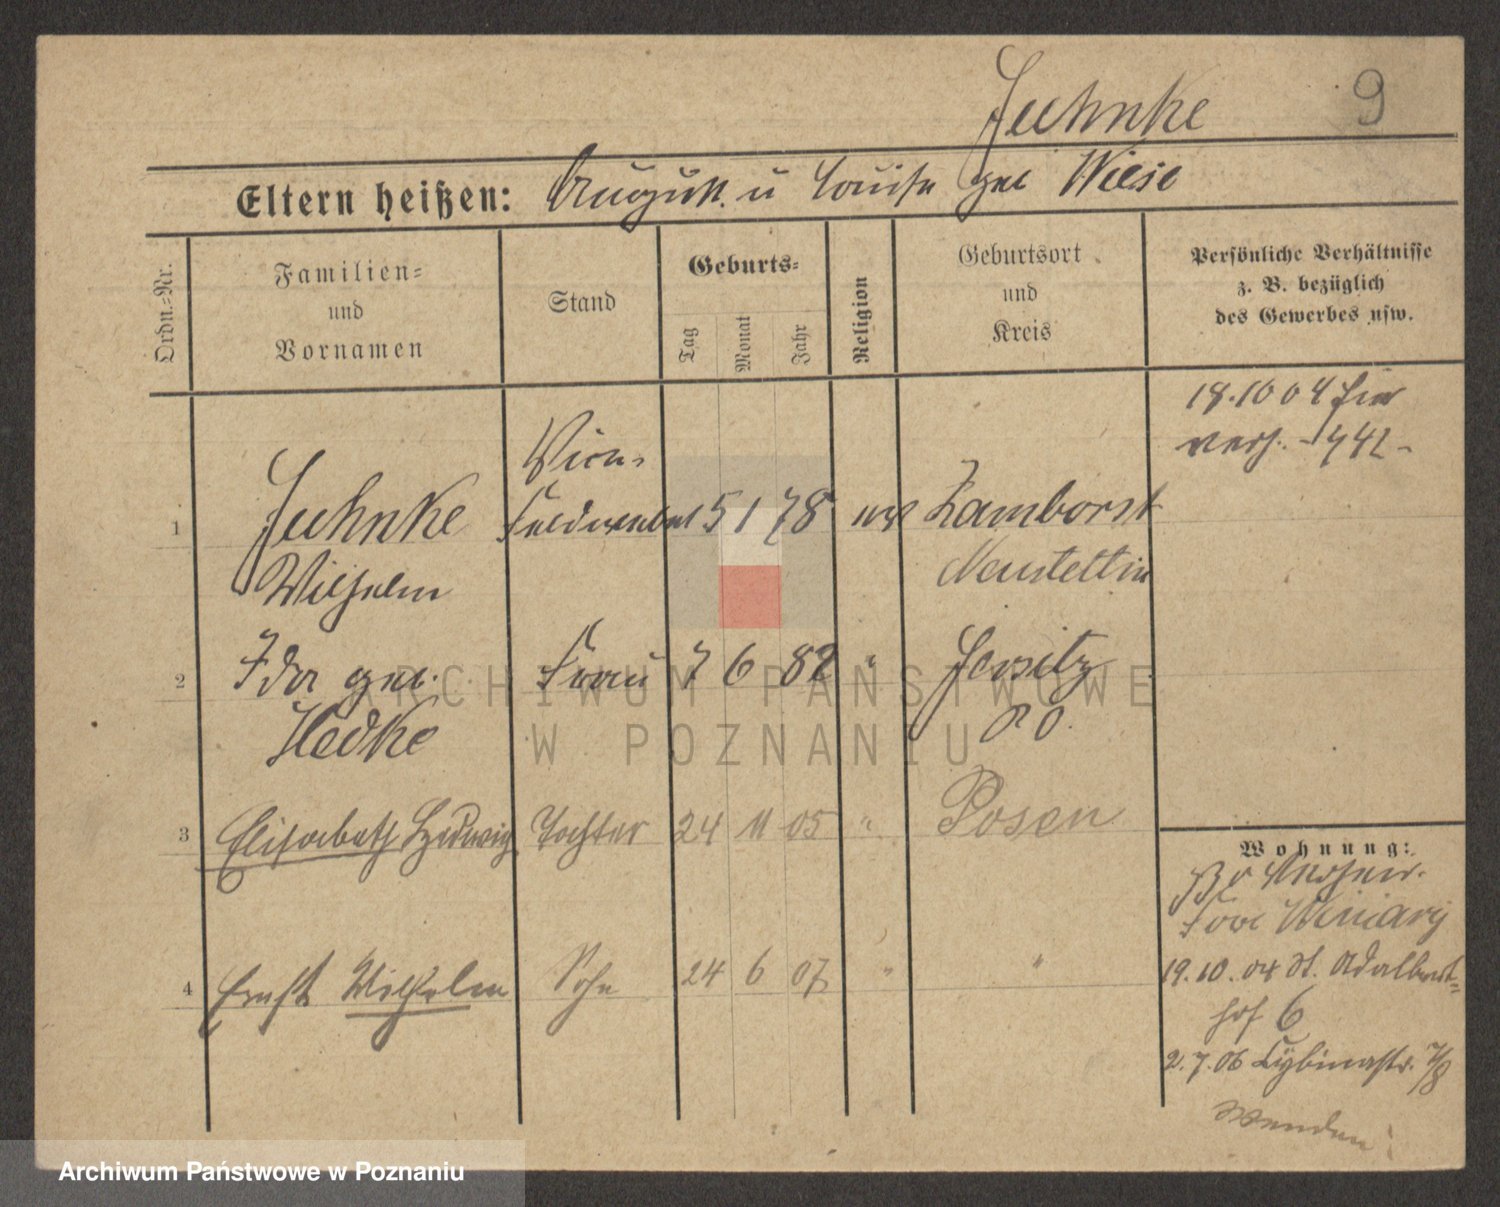 Juhnke 9
Eltern heißen: August u Louise geb Wiese
Ordn.=Nr.
Familien=
und
Vornamen
Stand
Geburts=
Tag
Monat
Jahr
Religion
Geburtsort
und
Kreis
Persönliche Verhältnisse
z. B. bezüglich
des Gewerbes usw.
18.10 04
1 Juhnke
Wilhelm
Vice=
Feldwebel 5 1 78 ev Zamborst
Neustettin
2 Ida geb.
Hedke
Frau 7 6 82 " Jersitz
PO.
3 Elisabeth Hedwig Tochter 24 11 05 " Posen
4 Ernst Wilhelm Sohn 24 6 07 " "
Wohnung:
Fort Winiary
19.10. 04 St. Adalbert=
hof 6
2.7.06 Cybinastr. 7/8
Wenden!
ARCHIWUM PAŃSTWOWE
W POZNANIU
Archiwum Państwowe w Poznaniu